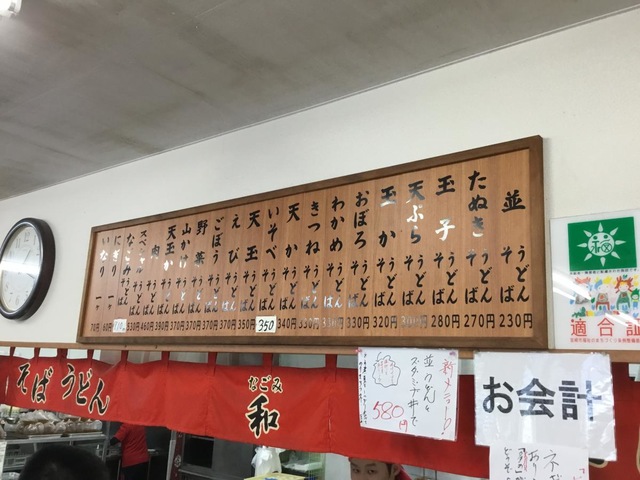 並 そば うどん 230円
たぬき そば うどん 270円
玉子 そば うどん 280円
天ぷら そば うどん
玉か そば うどん 320円
おぼろ そば うどん 330円
わかめ そば うどん 330円
きつね そば うどん
天か そば うどん 340円
いそべ そば うどん 350
天玉 そば うどん 350円
えび そば うどん 370円
ごぼう そば うどん 370円
野菜 そば うどん 370円
山かけ そば うどん 370円
天玉か そば うどん 390円
肉 そば うどん 460円
スペシャル そば うどん
なごみ そば うどん
にぎり 一ケ 60円
いなり 一ケ 70円
そば うどん
なごみ
和
新メニュー!
並うどんと
スタミナ丼で
580円
お会計
適合証